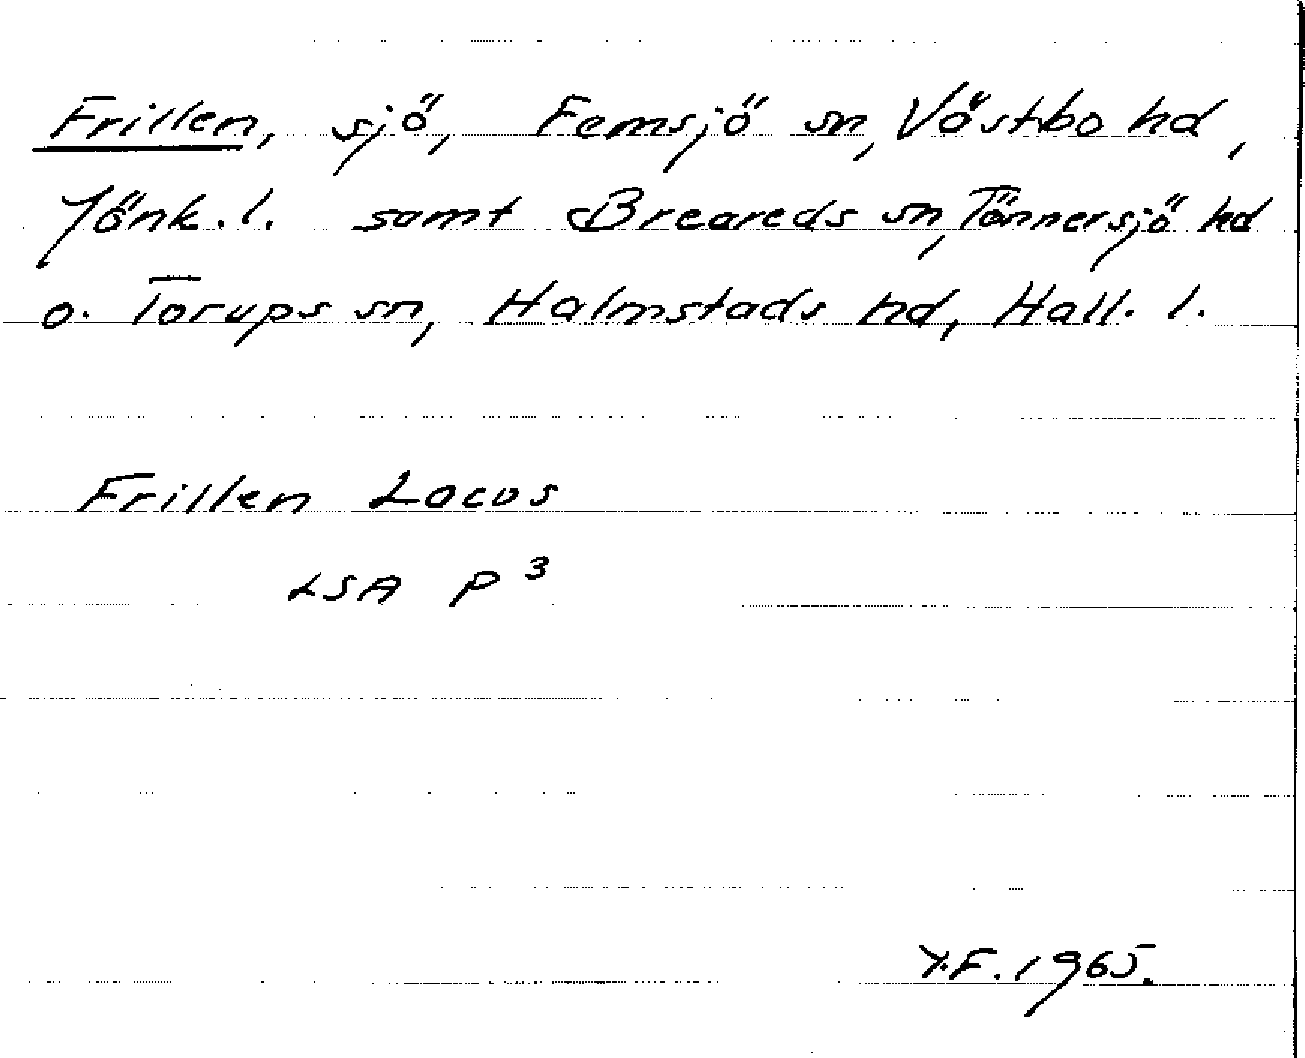 Frillen, sjö, Femsjö sn, Västbo hd,
Jönk. l. samt Breareds sn, Tönnersjö hd
o. Torups sn, Halmstads hd, Hall. l.
Frillen Lacus
LSA P 3
Y.F. 1965.